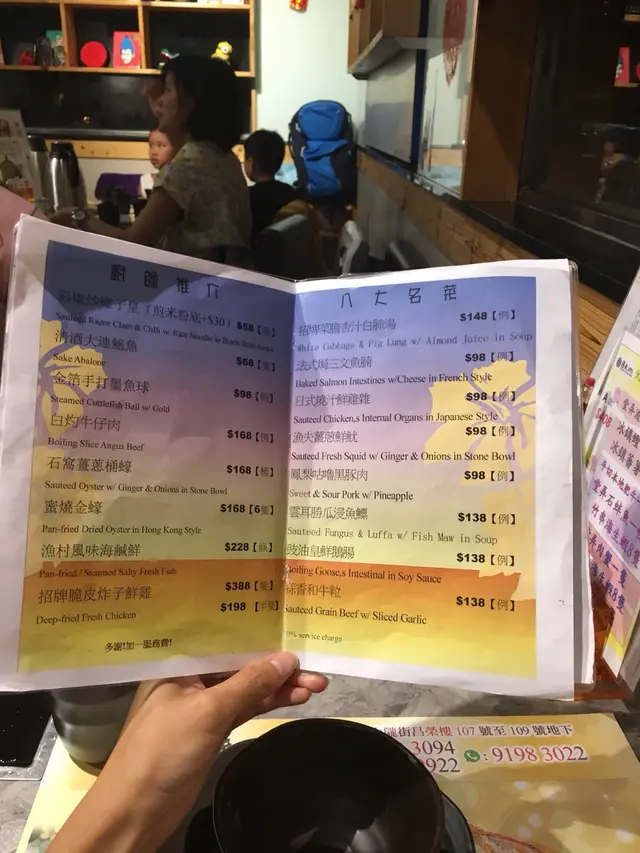 廚師推介
彩椒炒蟶子皇（煎米粉底+$30）$58【隻】
Sauteed Razor Clam & Chili w/ Rice Noodle in Black Bean Sauce
清酒大連鮑魚 $68【隻】
Sake Abalone
金箔手打墨魚球 $98【例】
Steamed Cuttlefish Ball w/ Gold
白灼牛仔肉 $168【例】
Boiling Slice Angus Beef
石窩薑蔥桶蠔 $168【桶】
Sauteed Oyster w/ Ginger & Onions in Stone Bowl
蜜燒金蠔 $168【6隻】
Pan-fried Dried Oyster in Hong Kong Style
漁村風味海鹹鮮 $228【條】
Pan-fried / Steamed Salty Fresh Fish
招牌脆皮炸子鮮雞 $388【隻】
$198【半隻】
Deep-fried Fresh Chicken
多謝!加一服務費!
八大名菜
招牌菜膽杏汁白肺湯 $148【例】
White Cabbage & Pig Lung w/ Almond Juice in Soup
法式焗三文魚腩 $98【例】
Baked Salmon Intestines w/Cheese in French Style
日式燒汁鮮雞雜 $98【例】
Sauteed Chicken,s Internal Organs in Japanese Style
漁夫薑蔥鮮魷 $98【例】
Sauteed Fresh Squid w/ Ginger & Onions in Stone Bowl
鳳梨咕嚕黑豚肉 $98【例】
Sweet & Sour Pork w/ Pineapple
雲耳勝瓜浸魚鰾 $138【例】
Sauteed Fungus & Luffa w/ Fish Maw in Soup
豉油皇鮮鵝腸 $138【例】
Boiling Goose,s Intestinal in Soy Sauce
蒜香和牛粒 $138【例】
Sauteed Grain Beef w/ Sliced Garlic
10% service charge
隴街昌榮樓 107 號至 109 號地下
3094
9922 : 9198 3022